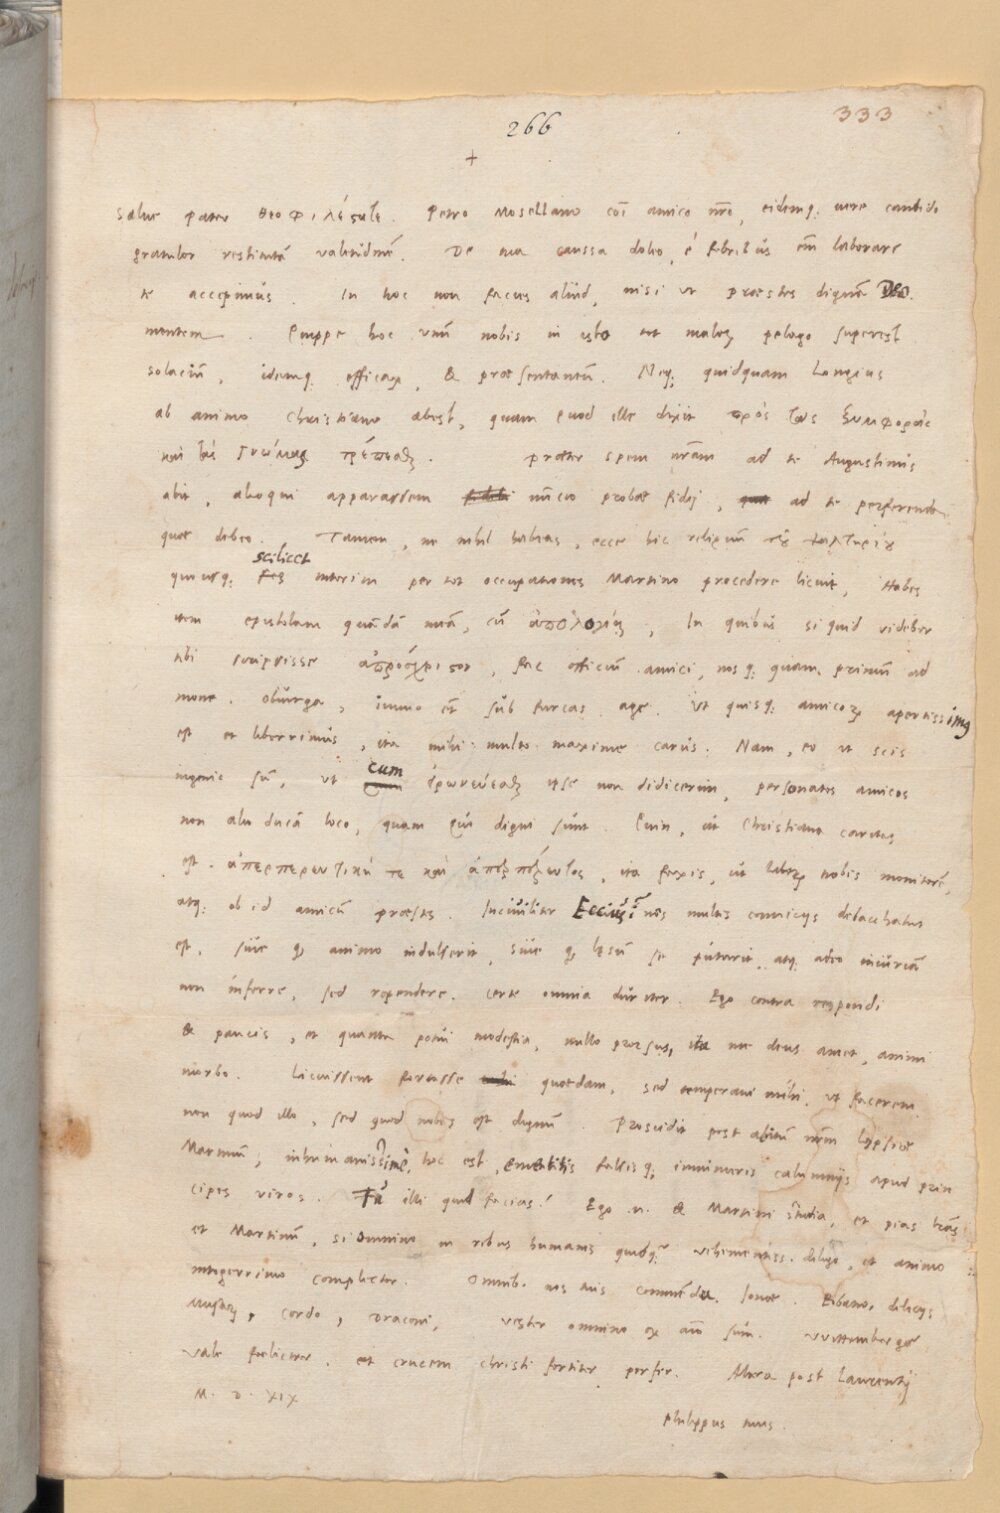 266
333
+
Salve pater θεοφιλέστατε. Petro Mosellano coi amico nro, eidemq; vere candido
gratulor restitutā valetudinē. De tua caussa doleo, è febribus em laborare
te accepimus. In hoc non facies aliud, nisi ut praestes dignam Deo
mentem. Quippe hoc unū nobis in isto tot malorum pelago superest
solaciū, idemq; efficax, & praesentaneū. Neq; quidquam longius
ab animo Christiano abest, quam quod ille dixit πρὸς τὰς ξυμφορὰς
καὶ τὰς γνώμας τρέπεσθαι. Praeter spem nram ad te Augustinus
abit, alioqui apparassem nuncio probae fidei, ad te perferenda
quae debeo. Tamen, ne nihil habeas, ecce hic reliquum τοῦ ψαλτηρίου
scilicet
quousq; interim per tot occupationes Martino procedere licuit, Habes
item epistolam quandā meā, cū ἀπολογίᾳ, In quibus si quid videbor
tibi scripsisse, fac officiū amici, nosq; quam primum ad
mone. Obiurga, immo et sub furcas age. Ut quisq; amicorum apertissimus
est et liberrimus, ita mihi multo maxime carus. Nam, eo ut scis
cum
ingenio sū, ut εἰρωνεύεσθαι ipse non didicerim, personatos amicos
non alio ducā loco, quam quo digni sunt. Quin, ut Christiana caritas
est. ἀπερπερευτική τε καὶ, ita faxis, ut liberum nobis monitorē,
atq; ob id amicū praestes. Inciviliter Eccius in nos multis conviciis debacchatus
est, sive q animo indulserit, sive q lęsum se putarit, atq; adeo iniuriā
non inferre, sed rependere. Certe omnia duriter. Ego contra respondi
& paucis, et quanta potui modestia, nullo prorsus, ita me deus amet, animi
morbo. Licuissent fortasse quaedam, sed temperavi mihi, ut facerem
non quod illo, sed quod nobis est dignum. Proscidit post abitū nrm Lypsiae
Martinū, inhumanissime, hoc est, falsisq; calumniis apud prin
cipes viros. Tu illi quid facias? Ego .n. & Martini studia, et pias lrās
et Martinū, si omnino in rebus humanis quidq, vehementiss. diligo, et animo
integerrimo complector. Omnib. nos tuis commenda. Eobano, deliciis
, Cordo, Draconi, vester omnino ex aīo sum. VVittembergae
Vale foeliciter. et crucem Christi fortiter perfer. Altera post Laurentij
M. D. XIX
Philippus tuus.